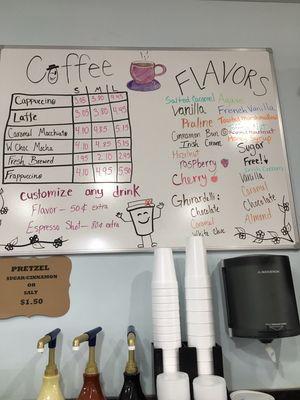 Coffee
S M L
Cappuccino 3.05 3.80 4.45
Latte 3.05 3.80 4.45
Caramel Macchiato 4.10 4.85 5.15
W. Choc Mocha 4.10 4.85 5.15
Fresh Brewed 1.95 2.10 2.45
Frappuccino 4.10 4.85 5.50
customize any drink
Flavor - 50¢ extra
Espresso Shot - 80¢ extra
FLAVORS
Salted Caramel
Vanilla
Praline
Cinnamon Bun
Irish Cream
Hazelnut
raspberry
Cherry
Ghirardelli:
Chocolate
Caramel
White Choc
Agave
French Vanilla
Toasted Marshmallow
Sugar
Free!
Vanilla
Caramel
Chocolate
Almond
PRETZEL
SUGAR/CINNAMON
OR
SALT
$1.50